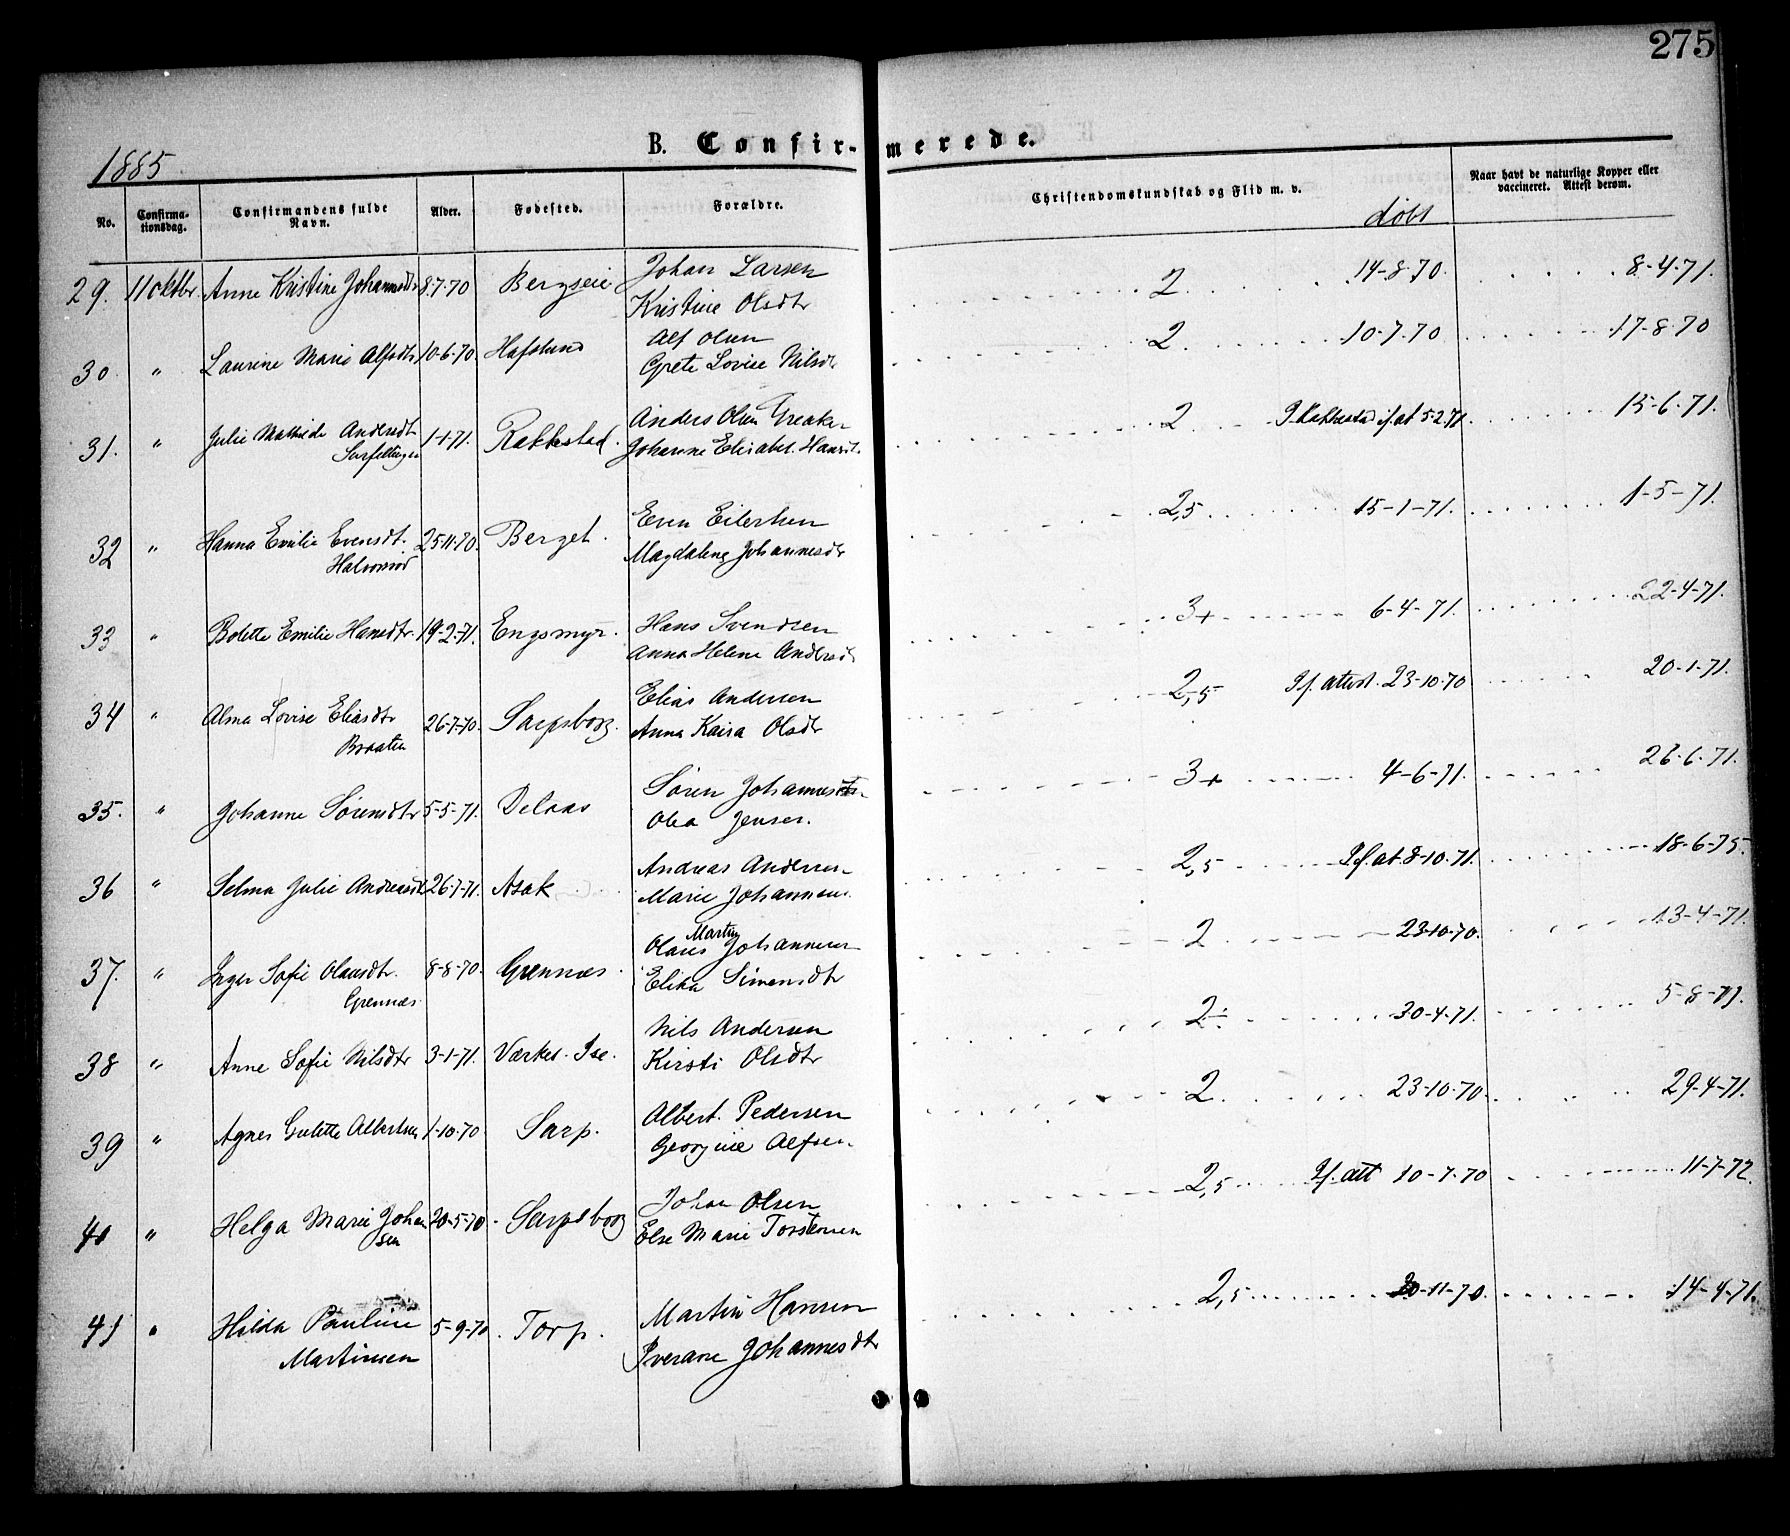 275
B. Confir-merede.
1885
No.
Confirma-
tionsdag.
Confirmandens fulde
Navn.
Alder.
Fødested.
Forældre.
Christendomskundskab og Flid m. v.
døbt
Naar havt de naturlige Kopper eller
vaccineret. Attest derom.
29. 11 oktbr. Anne Kristine Johannsdtr 8-7-70 Bergseie Johan Larsen 2 14-8-70. 8-4-71.
Kristine Olsdtr
30 " Laurine Marie Alfsdtr 10-6-70. Hafslund Alf Olsen 2 10-7-70 17-8-70
Grete Lovise Nilsdtr
31. " Julie Mathilde Andersdtr 1-1-71. Rakkestad. Anders Olsen Greaker 2 I Rakkestad if. at 5-2-71. 15-6-71.
Johanne Elisabet. Hansdt.
32 " Hanna Emilie Evensdt. 25-11-70. Berget. Even Eilertsen 2,5 15-1-71. 1-5-71.
Halvorsrød Magdalena Johannesdtr
33 " Bolette Emilie Hansdtr. 19-2-71. Engsmyr. Hans Svendsen 3+ 6-4-71. 22-4-71.
Anna Helene Andersdt
34 " Alma Lovise Eliasdtr 26-7-70. Sarpsborg. Elias Andersen 2,5 If. attest. 23-10-70 20-1-71.
Braaten Anna Kaisa Olsdtr
35. " Johanne Sørensdtr 5-5-71. Delaas Søren Johannes 3+ 4-6-71. 26-6-71.
Olea Jensen.
36 " Selma Julie Andreasdt 26-7-71. Asak Andreas Andersen 2,5 If at 8-10-71. 18-6-75.
Marie Johannesen.
Martin
37. " Inger Sofie Olausdtr. 8-8-70. Grennæs. Olaus Johannesen 2 23-10-70. 13-4-71.
Grennæs. Elika Simensdtr
38 " Anne Sofie Nilsdtr 3-1-71. Værket. Ise. Nils Andersen 2÷ 30-4-71. 5-8-71.
Kirsti Olsdtr
39 " Agnes Gulette Albertsen 1-10-70. Sarp. Albert. Pedersen 2 23-10-70. 29-4-71.
Georgine Alfsen.
40 " Helga Marie Johan 20-5-70. Sarpsborg Johan Olsen 2,5 If. att 10-7-70 11-7-72.
sen Else Marie Torstensen
41 " Hilda Pauline 5-9-70. Torp. Martin Hansen 2,5 20-11-70. 14-4-71.
Martinsen Iverane Johannesdtr